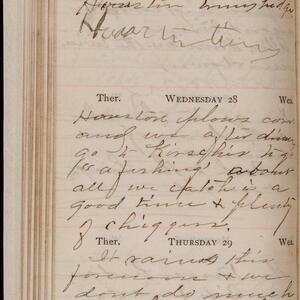 Houston
Ther. WEDNESDAY 28 Wea.
Houston plows corn
and we after dinner
go to to go
"a fishing" about
all we catch is a
good time & plenty
of chiggers.
Ther. THURSDAY 29 Wea.
It rains this
forenoon & we
dont do much